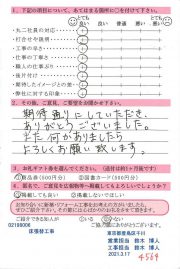 1. 下記の項目について、あてはまる個所に○を付けて下さい。
とても良い 良い 普通 悪い とても悪い
・丸二社員の対応
・打合せや説明
・工事の早さ
・仕事の丁寧さ
・職人の仕事ぶり
・後片付け
・期待したイメージとの一致
・弊社に対する印象
2. その他、ご意見、ご要望をお聞かせ下さい。
期待通りにしていただき、
ありがとうございました。
また何かありましたら
よろしくお願い致します。
3. お礼ギフト券を選んでください。
①商品券(500円分) ②図書カード(500円分)
4. 匿名で、ご意見を広告物等へ掲載してもよろしいでしょうか？
02198006
床張替工事
東京都豊島区千川
営業担当 鈴木 博人
工事担当 鈴木 博人
2021.3.17
4569